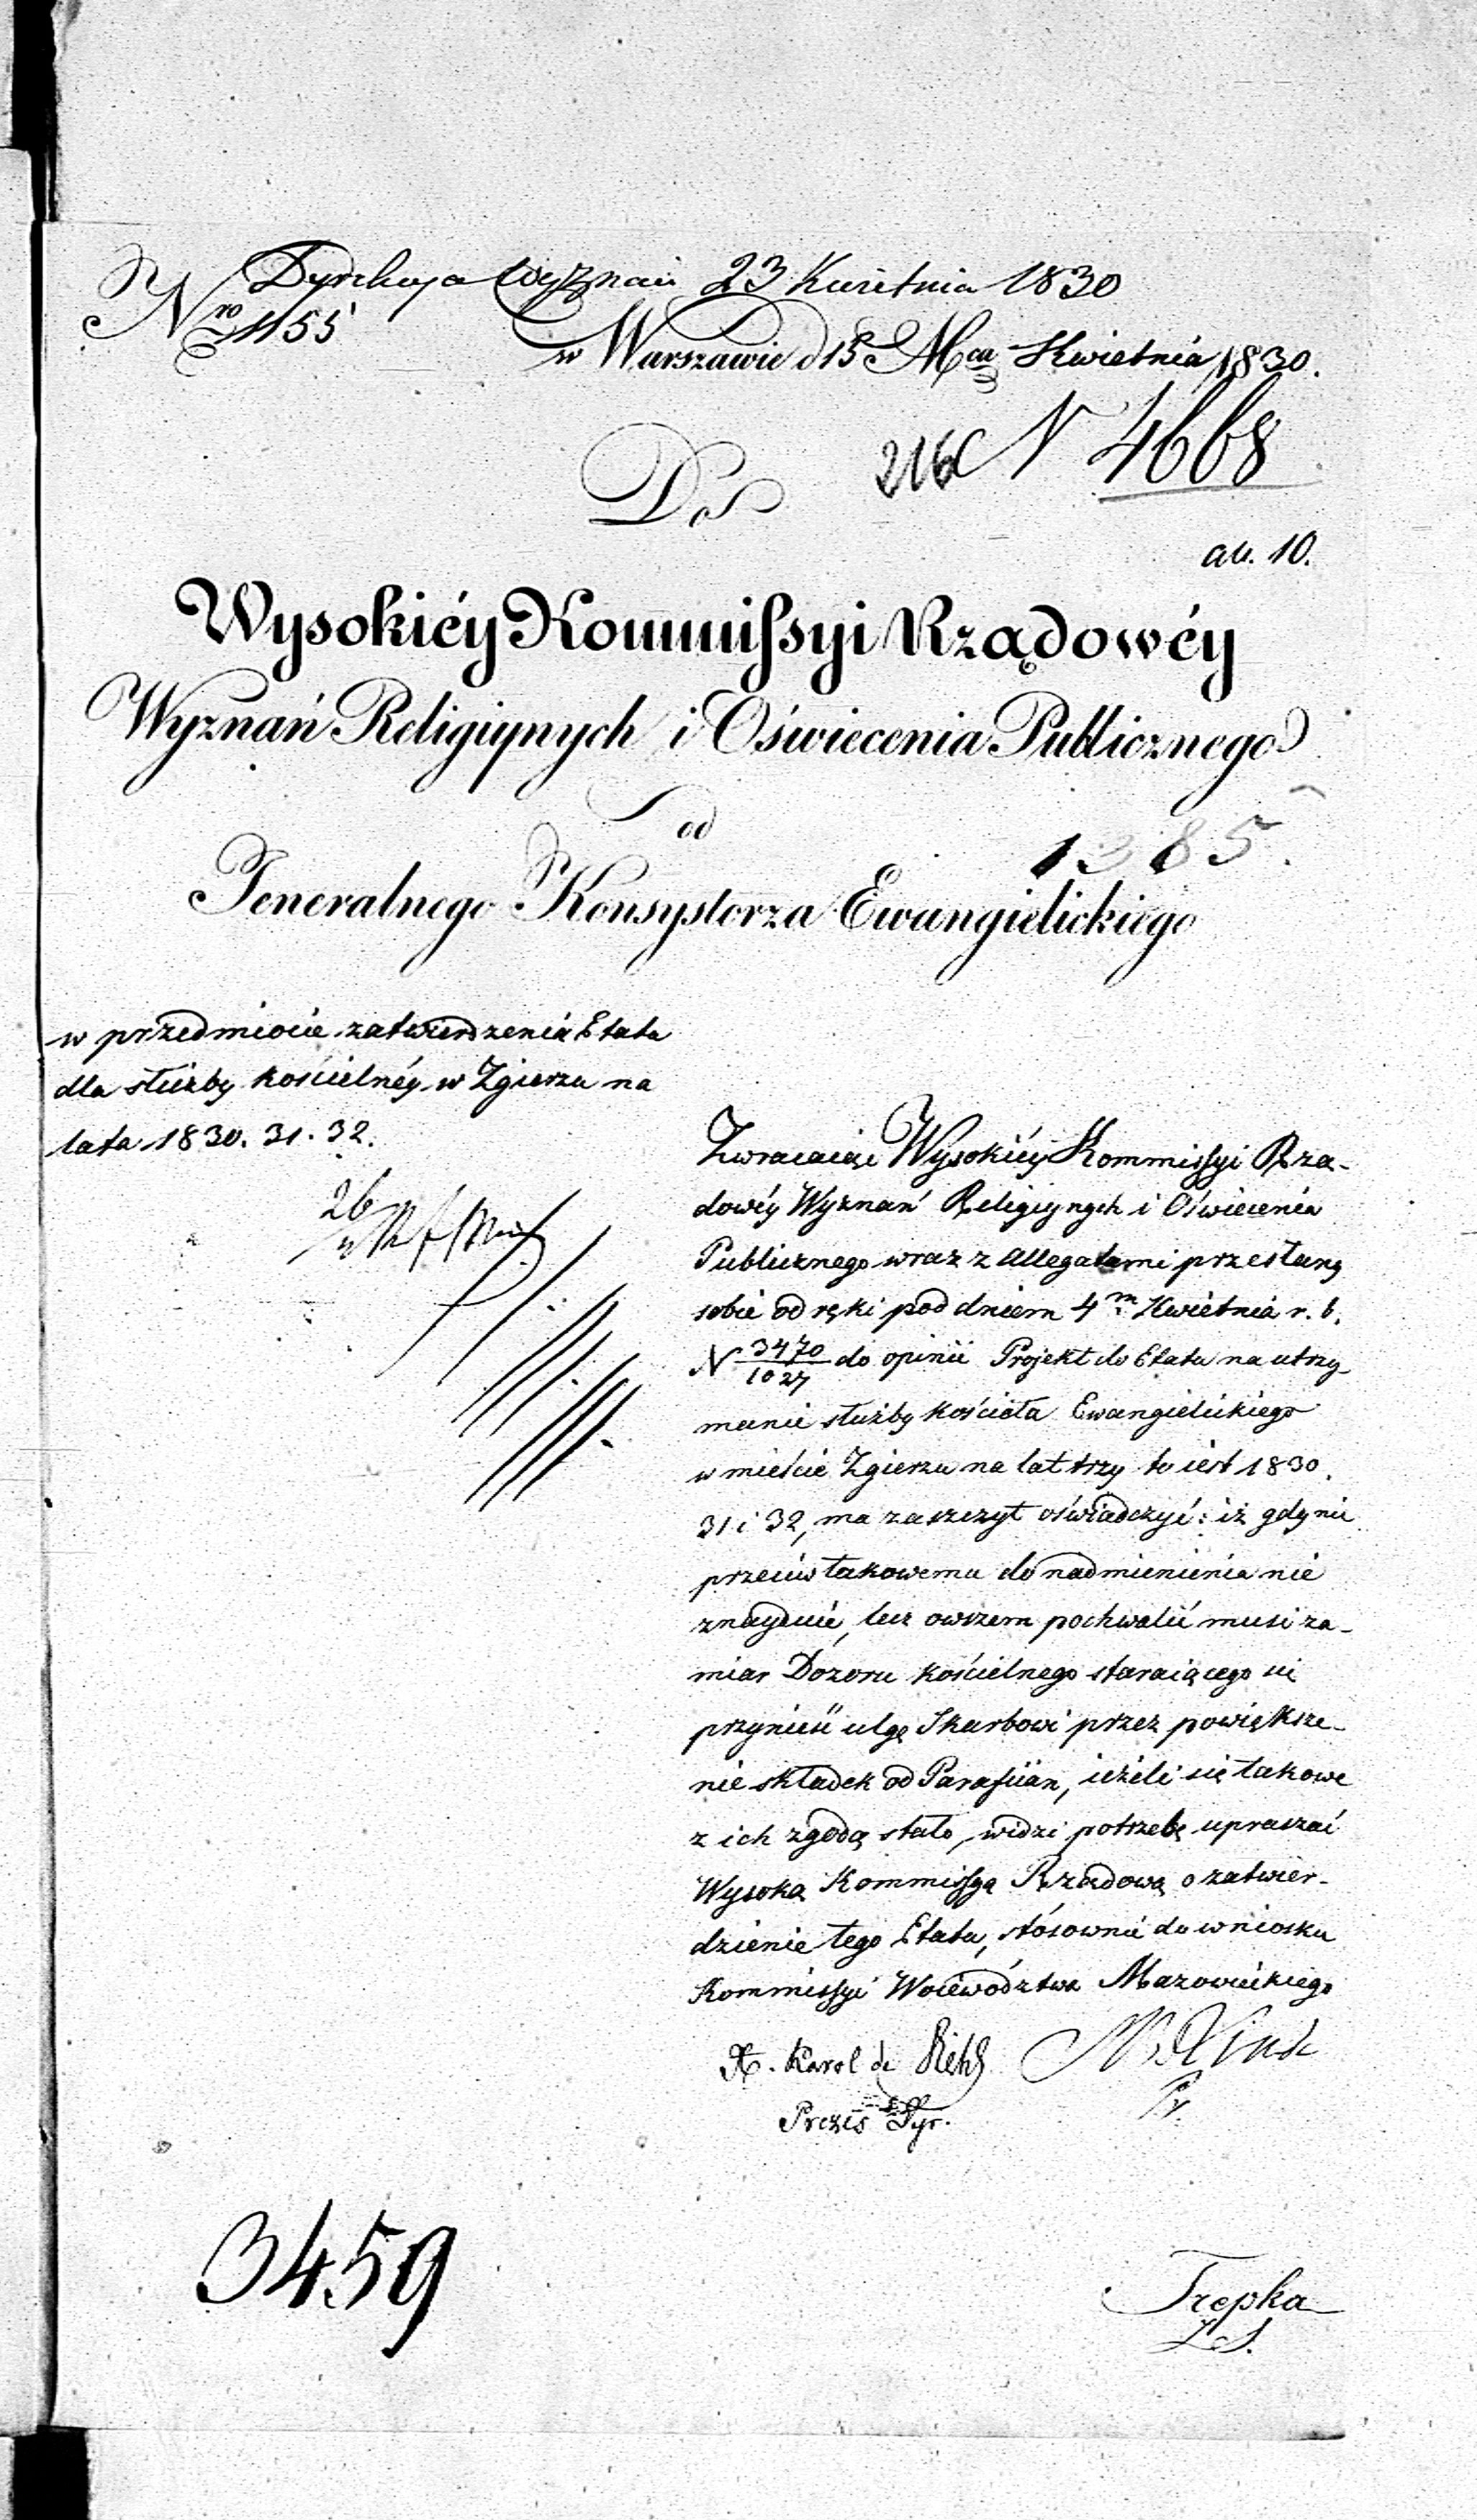 Dyrekcya Wyznań 23 Kwietnia 1830
Nro 1155
w Warszawie d 15 Mca Kwietnia 1830.
216 N 4668
Do
ad. 10.
Wysokiéy Kommissyi Rządowéy
Wyznań Religiynych i Oświecenia Publicznego
od
1385.
Jeneralnego Konsystorza Ewangielickiego
w przedmiocie zatwierdzenia Etatu
dla służby kościelnéy w Zgierzu na
lata 1830. 31. 32.
26
Zwracaiąc Wysokiéy Kommissyi Rzą-
dowéy Wyznań Religiynych i Oświecenia
Publicznego wraz z allegatami przesłany
sobie od ręki pod dniem 4m Kwietnia r. b.
N 3470/1027 do opinii Projekt do Etatu na utrzy-
manie służby kościoła Ewangielickiego
w mieście Zgierzu na lat trzy to iest 1830.
31 i 32, ma zaszczyt oświadczyć: iż gdy nic
przeciw takowemu do nadmienienia nie
znayduie, lecz owszem pochwalić musi za-
miar Dozoru kościelnego staraiącego się
przynieść ulgę Skarbowi przez powiększe-
nie składek od Parafiian, ieżeli się takowe
z ich zgodą stało, widzi potrzebę upraszać
Wysoką Kommissyą Rządową o zatwier-
dzenie tego Etatu, stósownie do wniosku
Kommissyi Woiewództwa Mazowieckiego
X. Karol de
Prezes Dyr.
Pr.
3459
Trepka
Z. S.